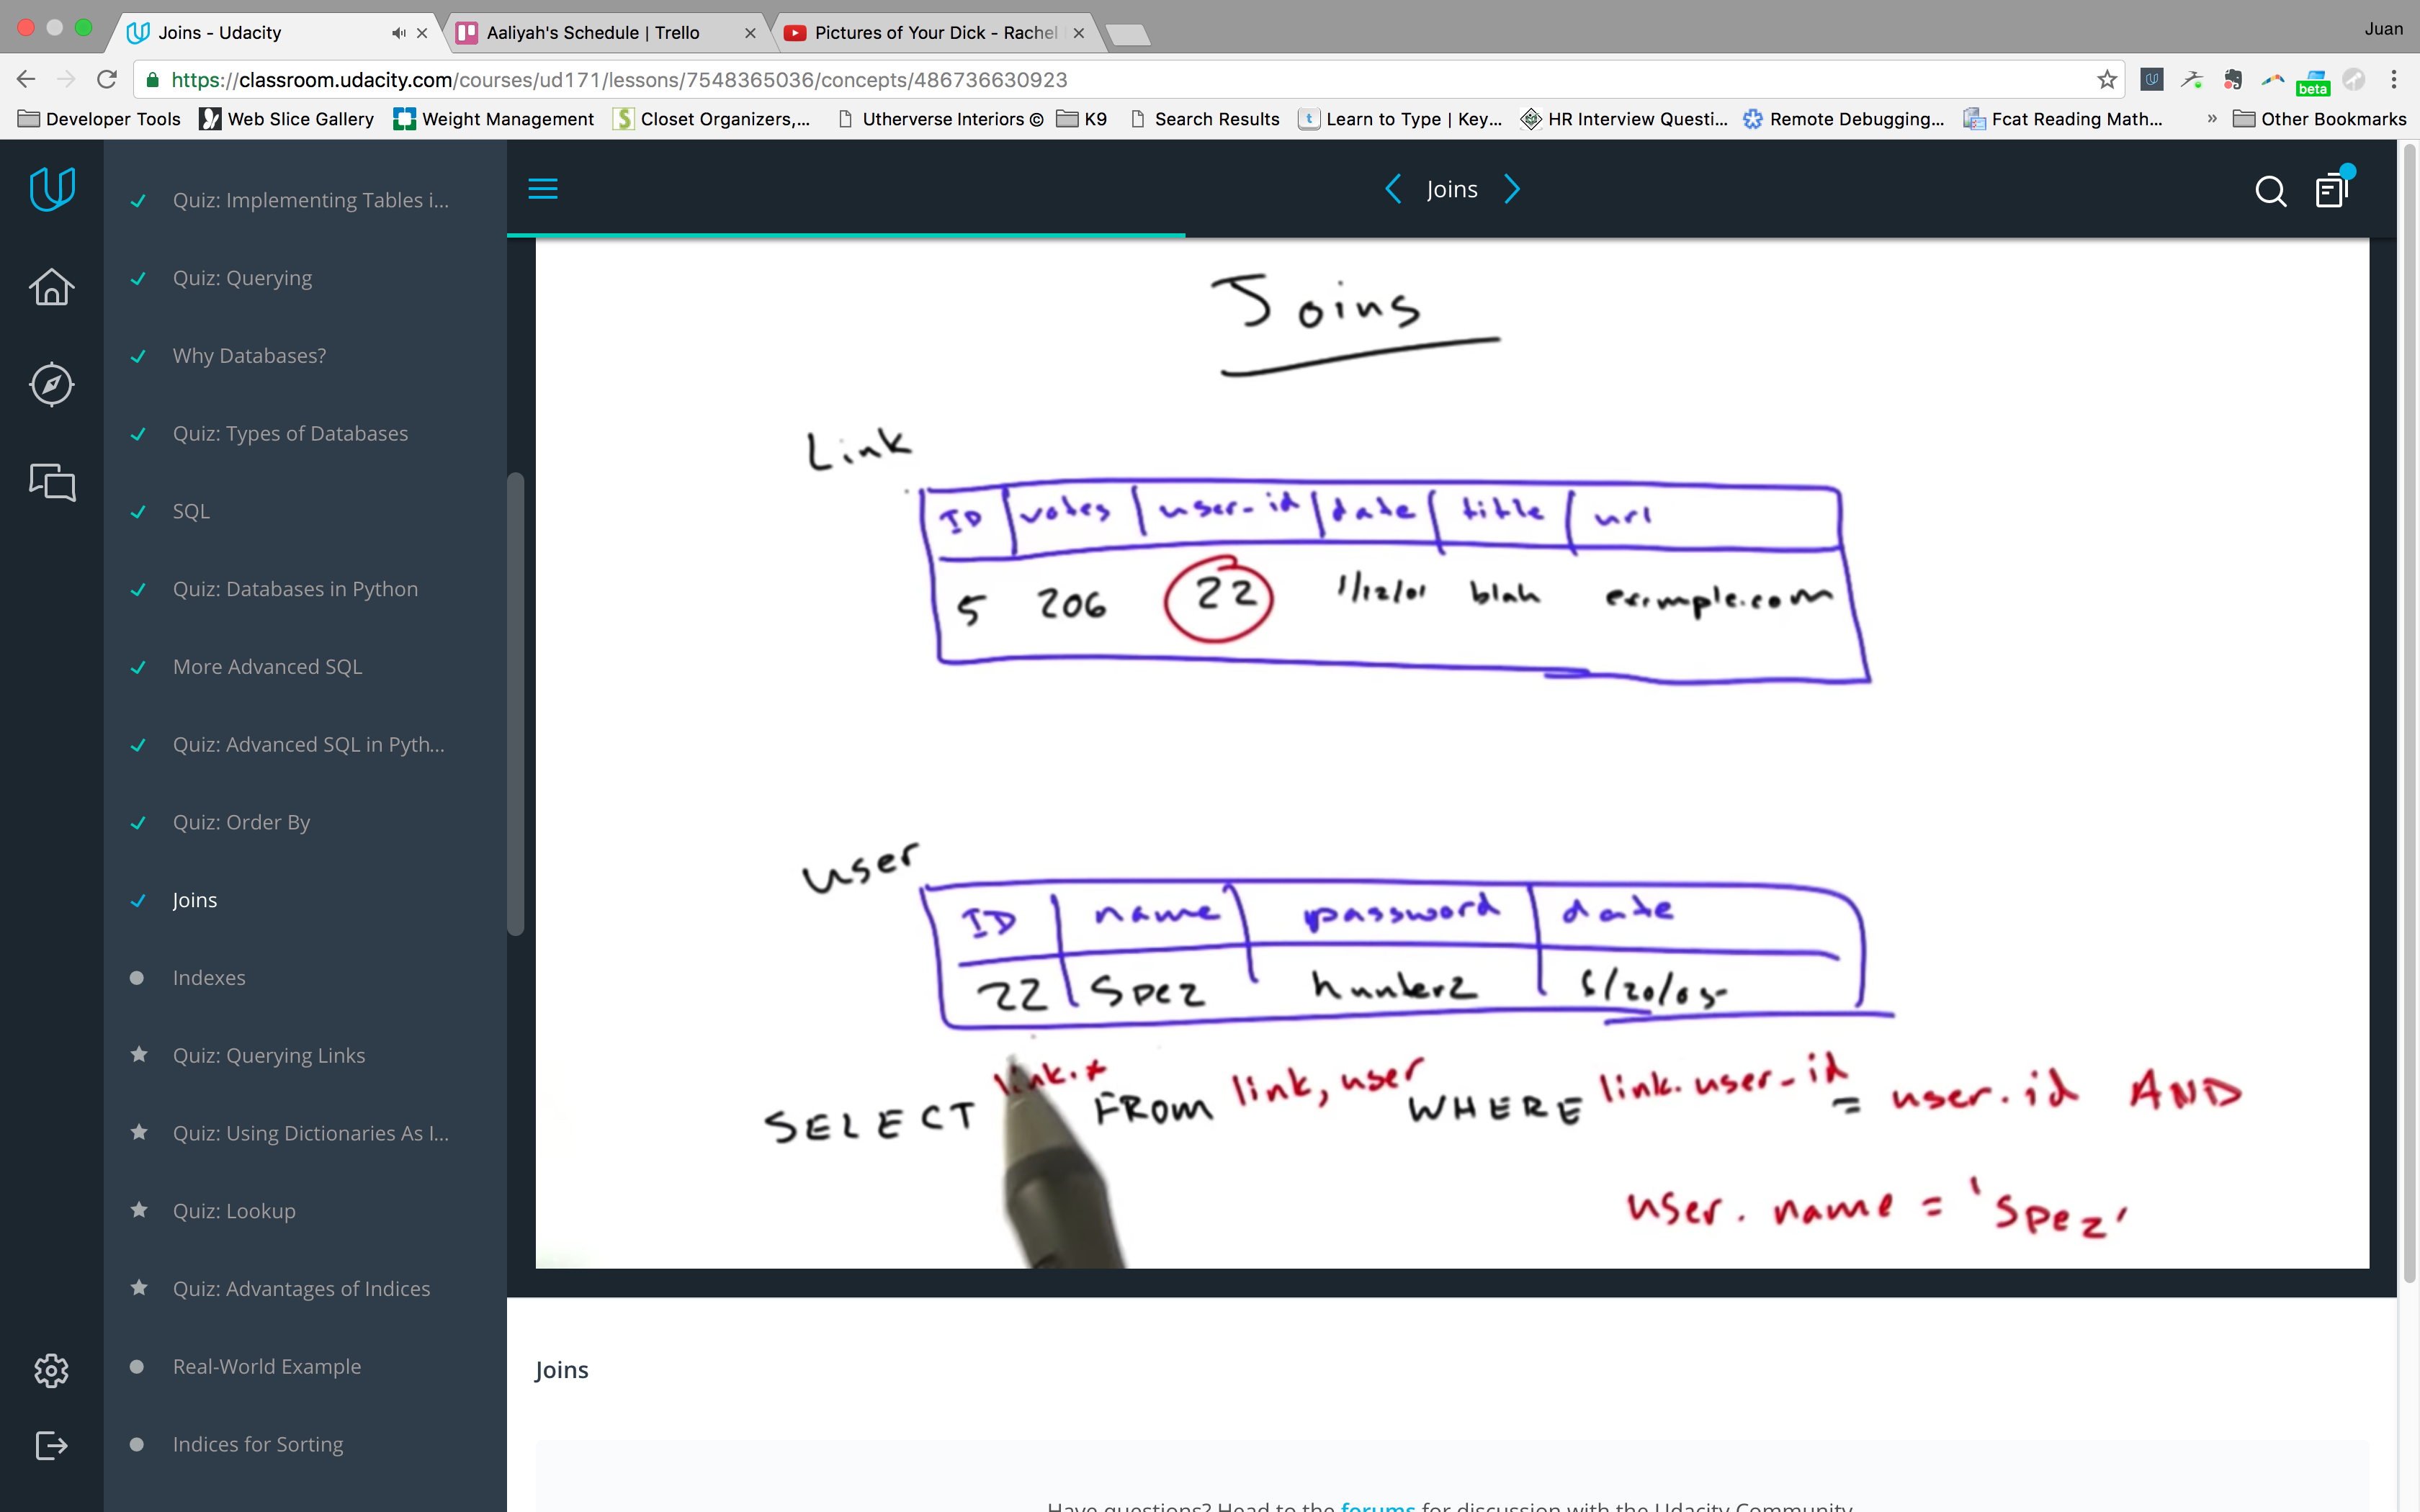 Joins - Udacity
Aaliyah's Schedule | Trello
Pictures of Your Dick - Rachel
Juan
https://classroom.udacity.com/courses/ud171/lessons/7548365036/concepts/486736630923
beta
Developer Tools
Web Slice Gallery
Weight Management
Closet Organizers,...
Utherverse Interiors ©
K9
Search Results
Learn to Type | Key...
HR Interview Questi...
Remote Debugging...
Fcat Reading Math...
» Other Bookmarks
Joins
Quiz: Implementing Tables i...
Quiz: Querying
Why Databases?
Quiz: Types of Databases
SQL
Quiz: Databases in Python
More Advanced SQL
Quiz: Advanced SQL in Pyth...
Quiz: Order By
Joins
Indexes
Quiz: Querying Links
Quiz: Using Dictionaries As I...
Quiz: Lookup
Quiz: Advantages of Indices
Real-World Example
Indices for Sorting
Joins
Link
ID votes user-id date title url
5 206 22 1/12/01 blah example.com
user
ID name password date
22 Spez hunter2 6/20/05
SELECT link.* FROM link, user WHERE link.user-id = user.id AND
user.name = 'Spez'
Joins
Have questions? Head to the forums for discussion with the Udacity Community.